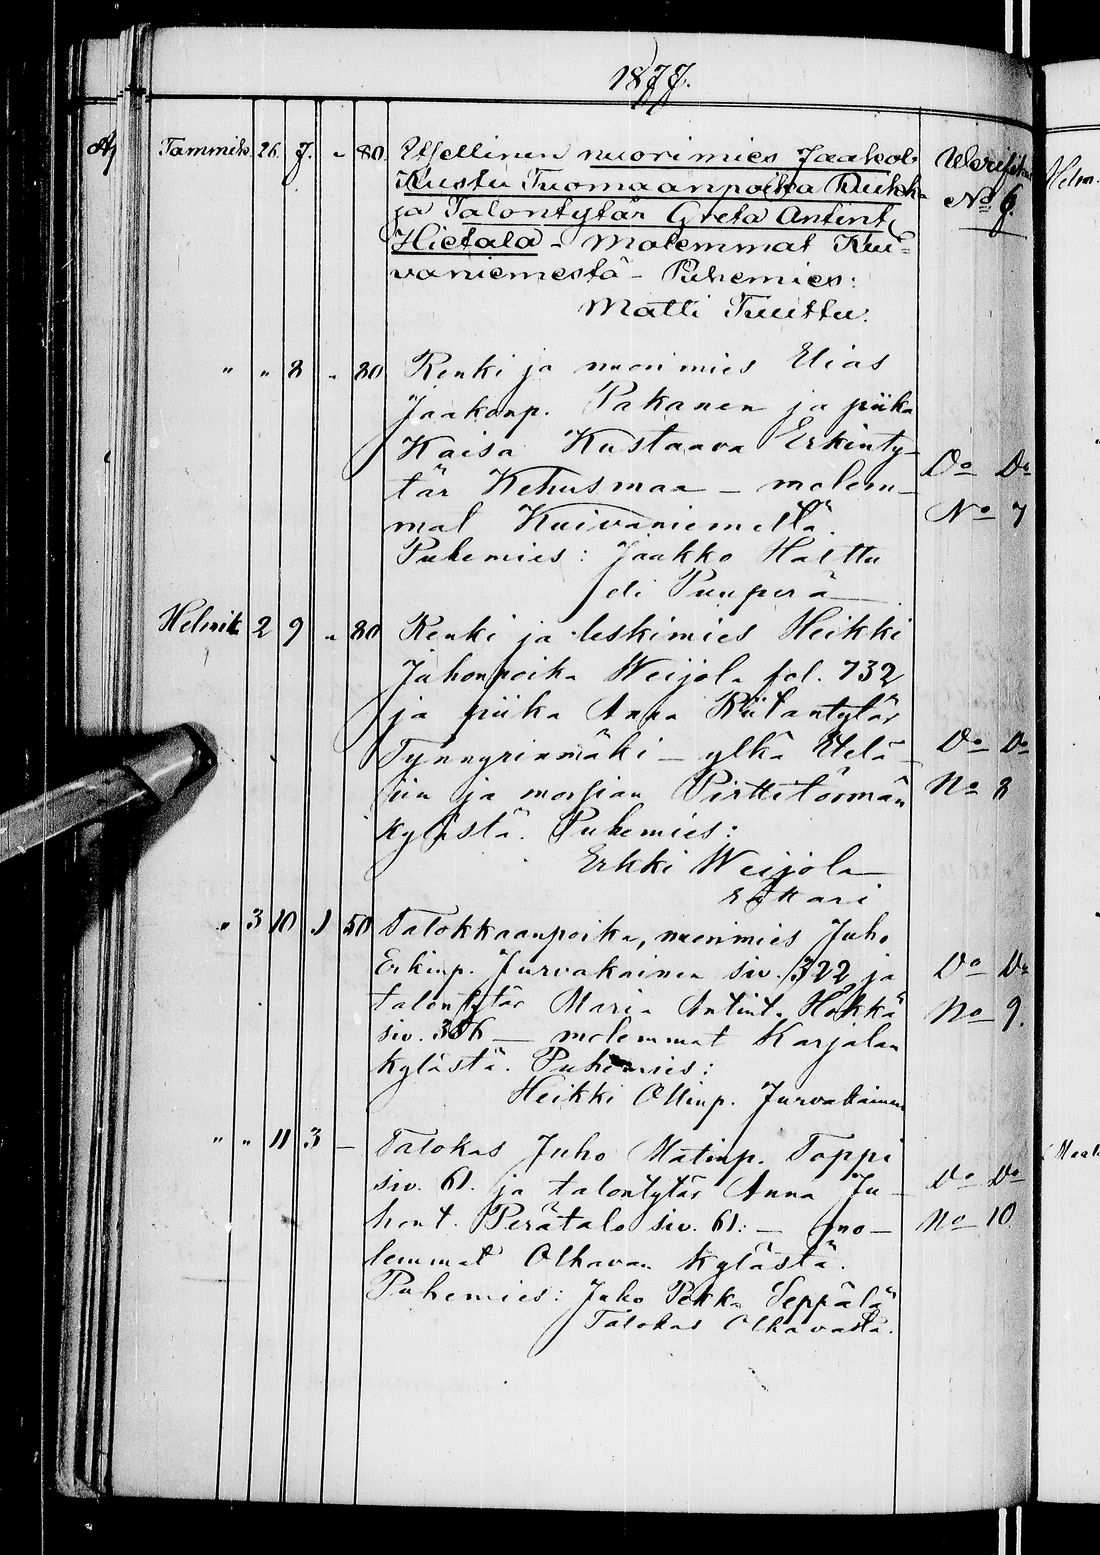 1877.
Tammik. 26. 7. " 80. Itsellinen nuorimies Jaakob Werifik.
Kustu Tuomaanpoika No 6.
ja Talontytär Greta Antint.
Hietala - molemmat Kui-
vaniemestä - Puhemies:
Matti Tuuttu.
" " 8 " 80 Renki ja nuorimies Elias
Jaakonp. Pakanen ja piika
Kaisa Kustaava Erkinty-
tär Kehusmaa - molem- Do Do
mat Kuivaniemeltä No 7
Puhemies: Jaakko Hattu
Puuperä
Helmik. 2 9 " 80 Renki ja leskimies Heikki
Juhonpoika Weijola fol. 732
ja piika Anna Riitantytär
Tynnyrinmäki - ylkä Etelä- Do Do
iin ja morsian Pirttitörmän No 8
kylästä. Puhemies:
Erkki Weijola
" 3 10 1 50 Talokkaanpoika, nuorimies Juho
Erkinp. Jurvakainen siv. 322 ja Do Do
talontytär Maria Antint. Hökkä No 9.
siv. 356 - molemmat Karjalan
kylästä. Puhemies:
Heikki Ollinp. Jurvakainen
" " 11 3 - Talokas Juho Matinp. Tappi
siv. 61. ja talontytär Anna Ju- Do Do
hont. Perätalo siv. 61. - mo- No 10
lemmat Olhavan kylästä.
Puhemies: Juho Pekka Seppälä
Talokas Olhavasta.
Helm.